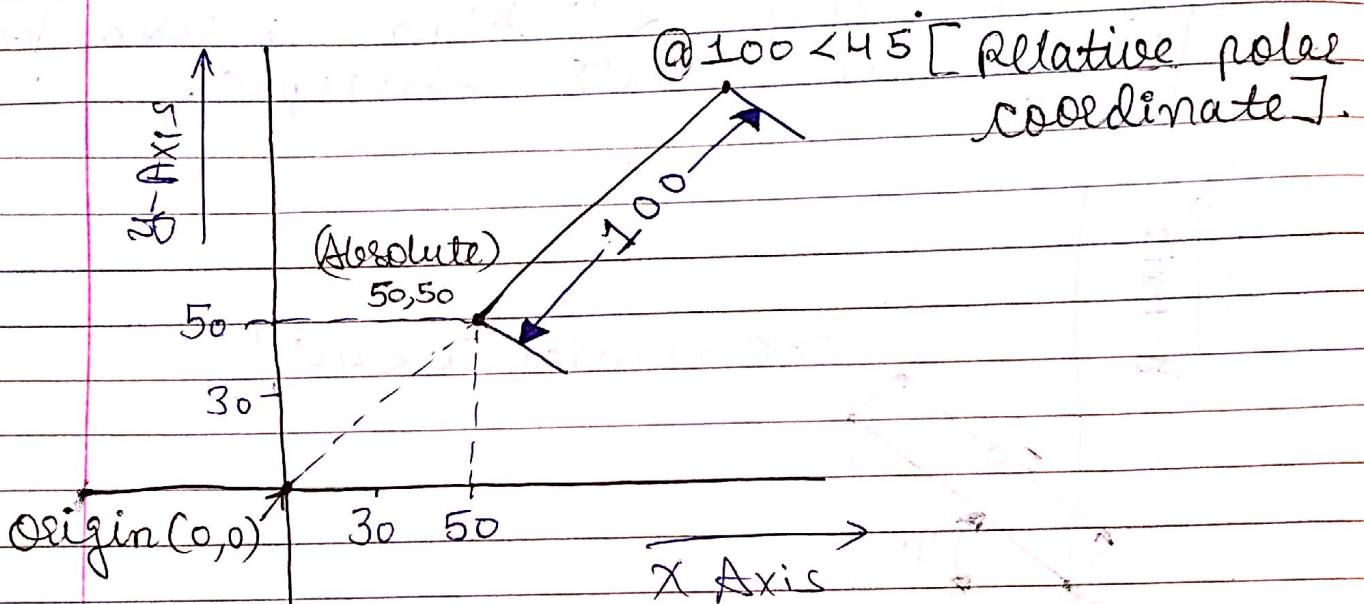 @100<45 [Relative polar
coordinate].
Y-Axis
100
(Absolute)
50,50
50
30
Origin (0,0)
30 50
X Axis